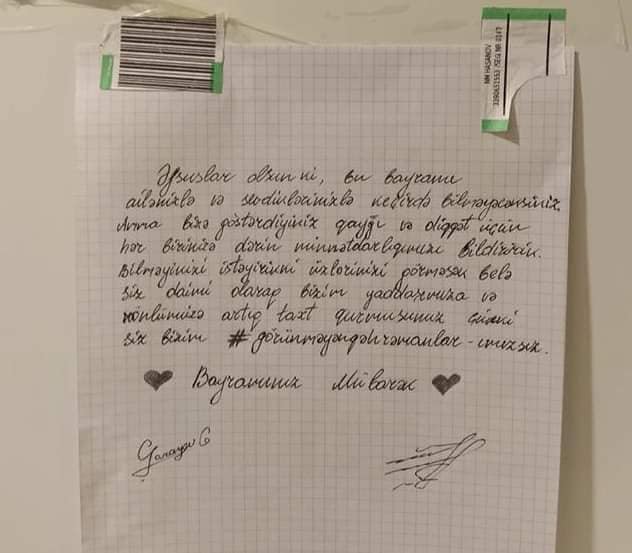 Əfsuslar olsun ki, bu bayramı
ailənizlə və sevdiklərinizlə keçirdə bilməyəcəksiniz.
Amma bizə göstərdiyiniz qayğı və diqqət üçün
hər birinizə dərin minnətdarlığımızı bildiririk.
Bilməyinizi istəyirikki üzlərinizi görməsək belə
siz daimi olaraq bizim yaddaşımıza və
könlümüzə artıq taxt qurmusunuz çünki
siz bizim #görünməyənqəhrəmanlar-ımızsız.
Bayramınız Mübarək